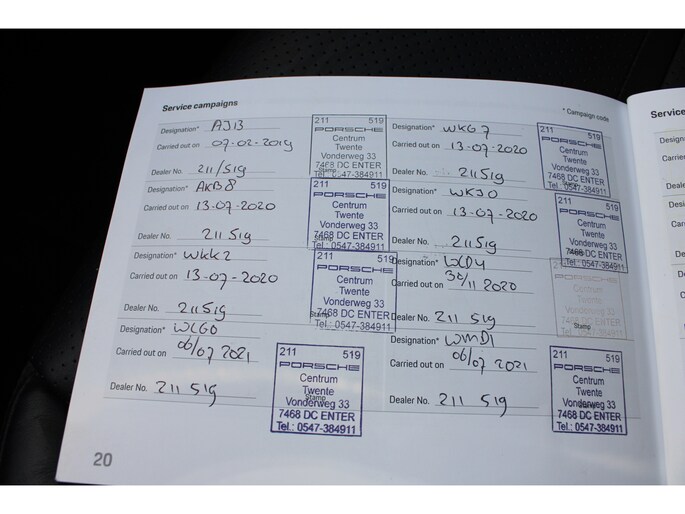 Service campaigns
* Campaign code
Designation* AJ13
Carried out on 07-02-2019
Dealer No. 211/519
211 519
PORSCHE
Centrum
Twente
Vonderweg 33
7468 DC ENTER
Stamp
Tel.: 0547-384911
Designation* WKG7
Carried out on 13-07-2020
Dealer No. 211519
211 519
PORSCHE
Centrum
Twente
Vonderweg 33
7468 DC ENTER
Stamp
Tel.: 0547-384911
Designation* AKB8
Carried out on 13-07-2020
Dealer No. 211519
211 519
PORSCHE
Centrum
Twente
Vonderweg 33
7468 DC ENTER
Stamp
Tel.: 0547-384911
Designation* WKJ0
Carried out on 13-07-2020
Dealer No. 211519
211 519
PORSCHE
Centrum
Twente
Vonderweg 33
7468 DC ENTER
Stamp
Tel.: 0547-384911
Designation* WKK2
Carried out on 13-07-2020
Dealer No. 211519
211 519
PORSCHE
Centrum
Twente
Vonderweg 33
7468 DC ENTER
Stamp
Tel.: 0547-384911
Designation* WLD4
Carried out on 30/11 2020
Dealer No. 211 519
211 519
PORSCHE
Centrum
Twente
Vonderweg 33
7468 DC ENTER
Stamp
Designation* WLG0
Carried out on 06/07 2021
Dealer No. 211 519
211 519
PORSCHE
Centrum
Twente
Stamp
Vonderweg 33
7468 DC ENTER
Tel.: 0547-384911
Designation* WMD1
Carried out on 06/07 2021
Dealer No. 211 519
211 519
PORSCHE
Centrum
Twente
Vonderweg 33
Stamp
7468 DC ENTER
Tel.: 0547-384911
20
Service